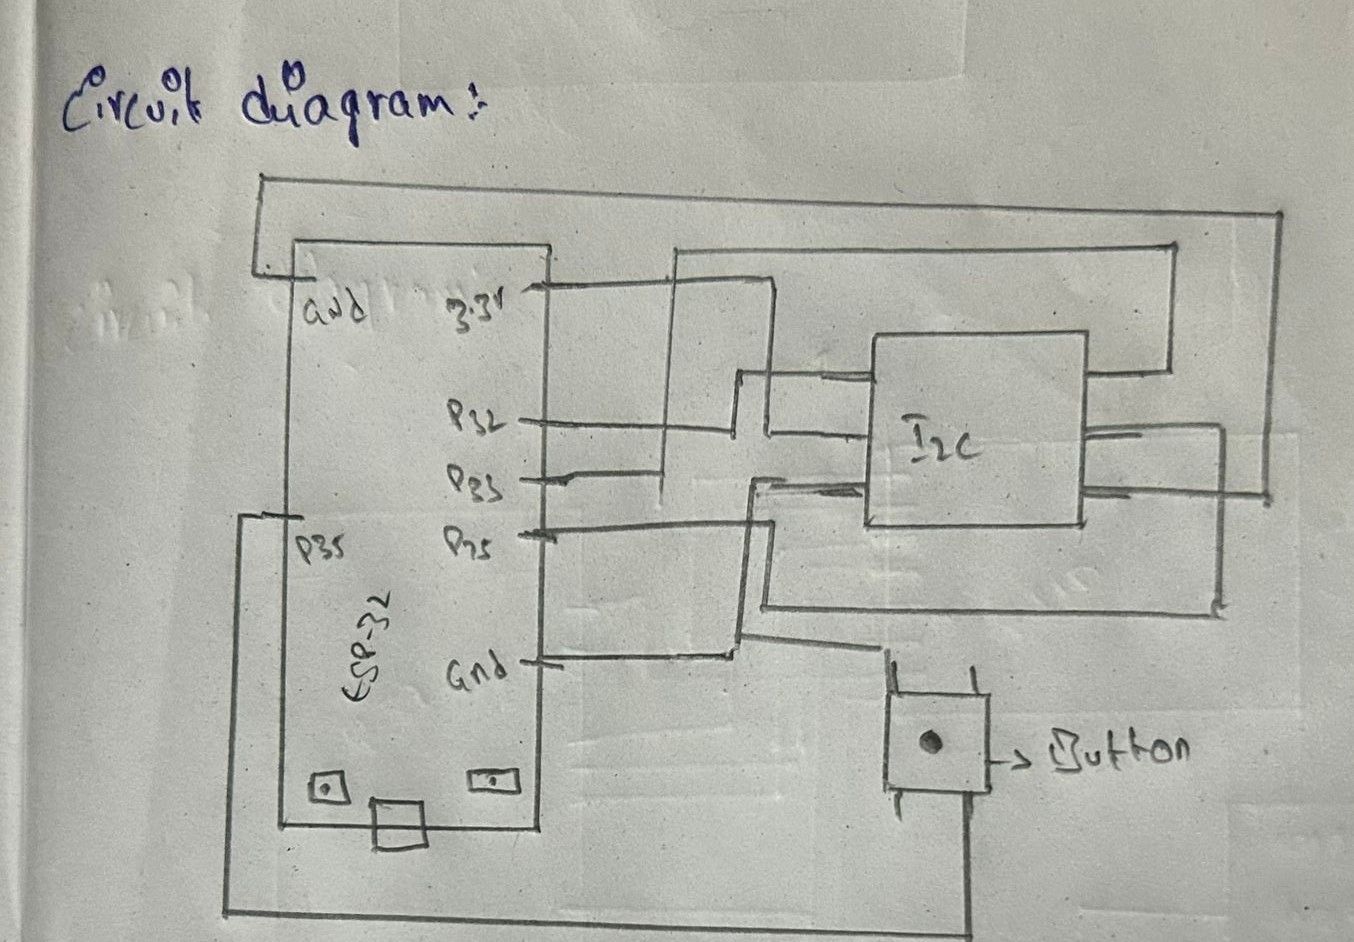 Circuit diagram:
Gnd 3.3V
P32
P33
P35 P25
ESP-32
Gnd
I2C
→ Button